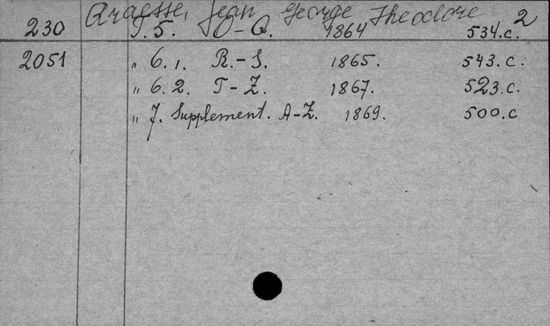 Graesse, Jean George Theodore 2
230 T. 5. O-Q. 1864 534.c.
2051 " 6.1. R.-S. 1865. 543.c.
" 6.2. T-Z. 1867. 523.c.
" 7. Supplement. A-Z. 1869. 500.c